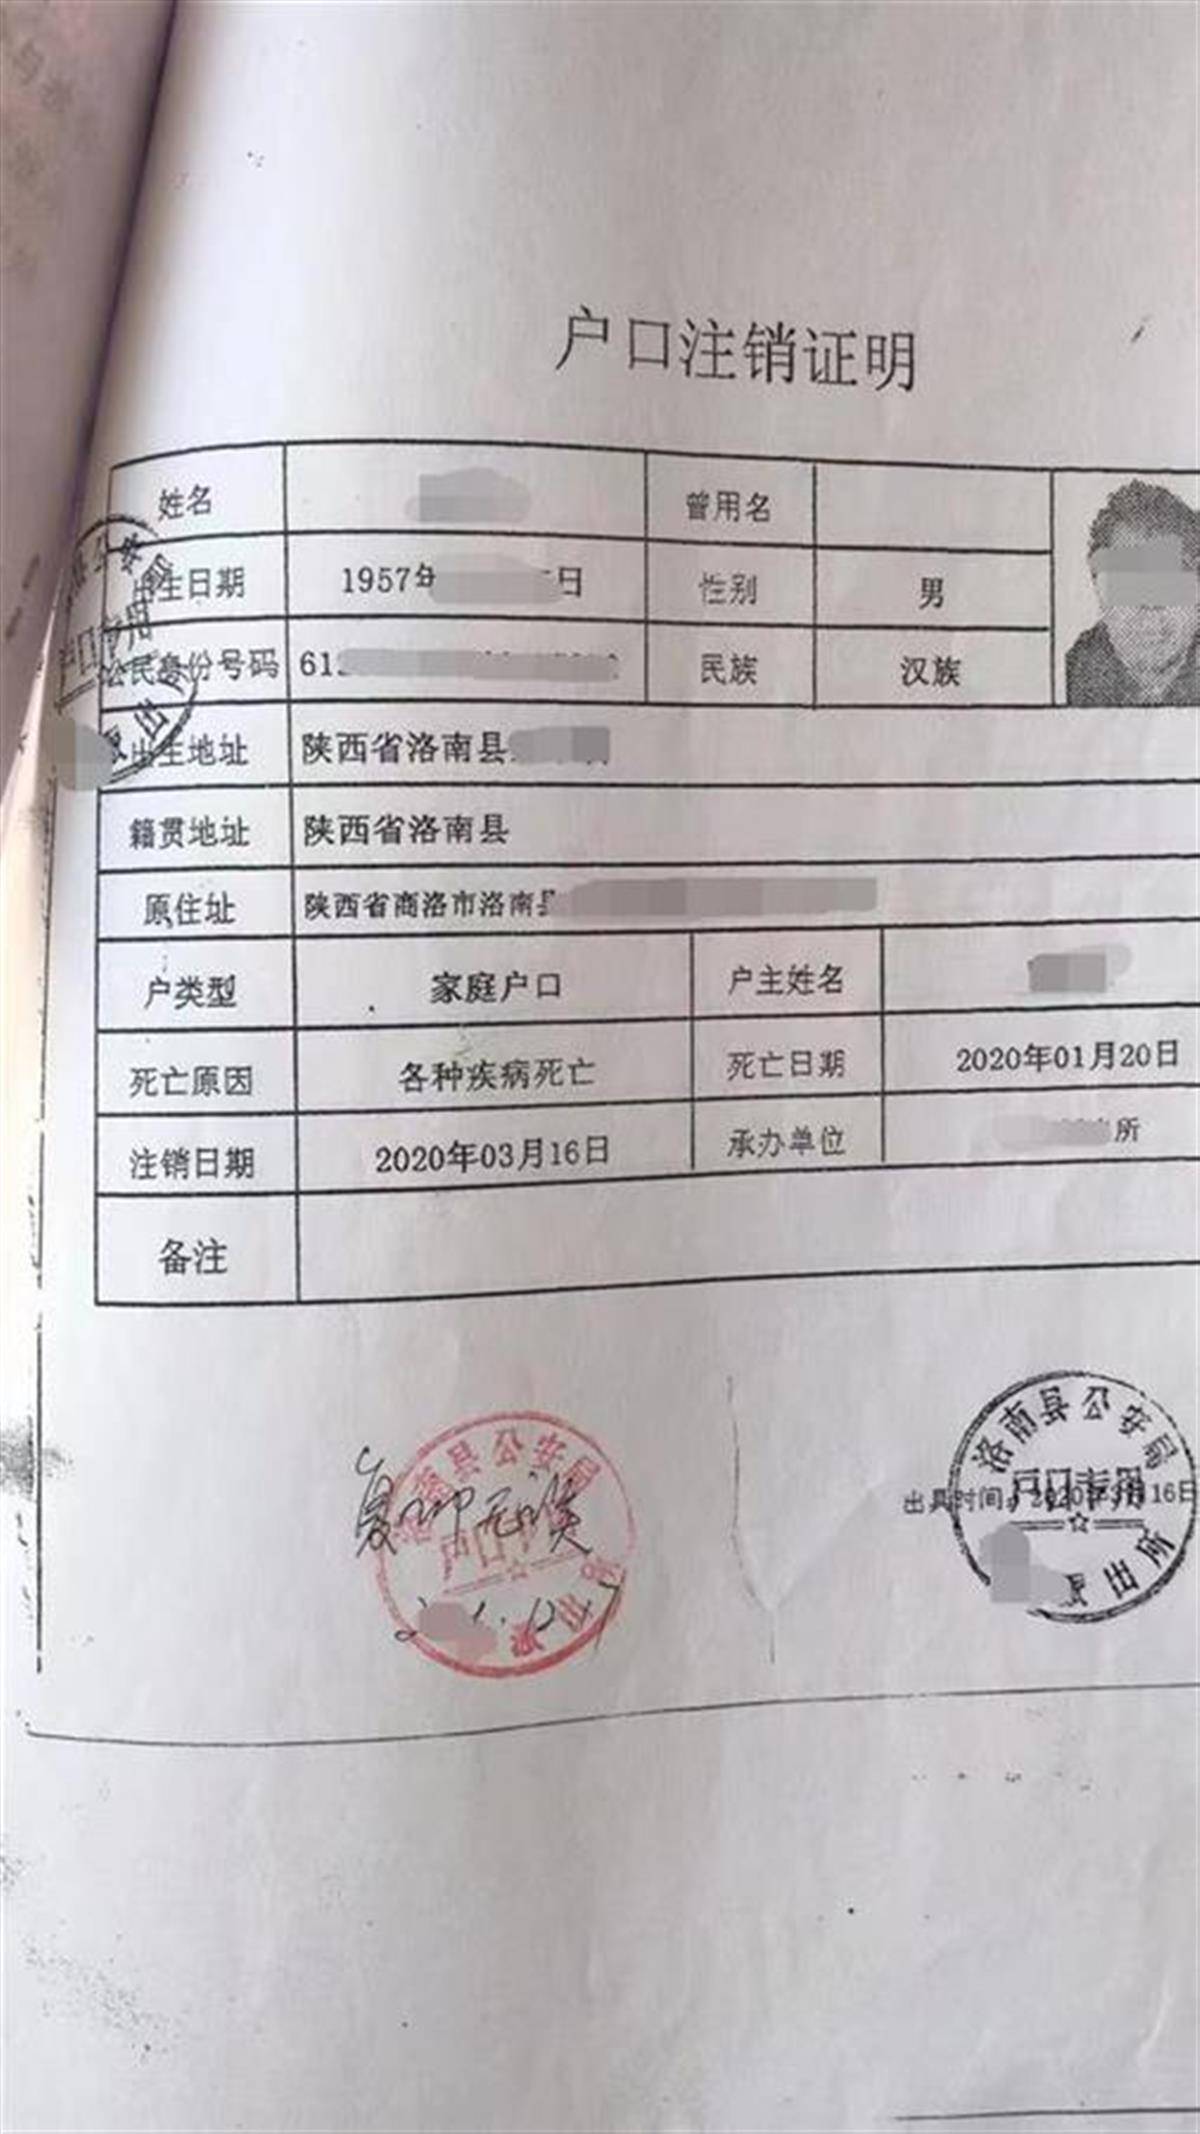 户口注销证明
姓名 曾用名
出生日期 1957年 日 性别 男
公民身份号码 61 民族 汉族
出生地址 陕西省洛南县
籍贯地址 陕西省洛南县
原住址 陕西省商洛市洛南县
户类型 家庭户口 户主姓名
死亡原因 各种疾病死亡 死亡日期 2020年01月20日
注销日期 2020年03月16日 承办单位 所
备注
洛南县公安局
户口专用
出具时间：2020年3月16日
出所
洛南县公安局
户口
复印无误